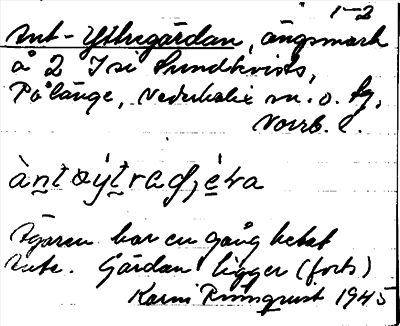 1-2
Ant-Yttregärdan, ängsmark
å 2 Isi Sundkvists,
Pålänge, Nederkalix sn. o. tg,
Norrb. l.
Ägaren har en gång hetat
Ante. Gärdan ligger (forts)
Karin Rönnqvist 1945